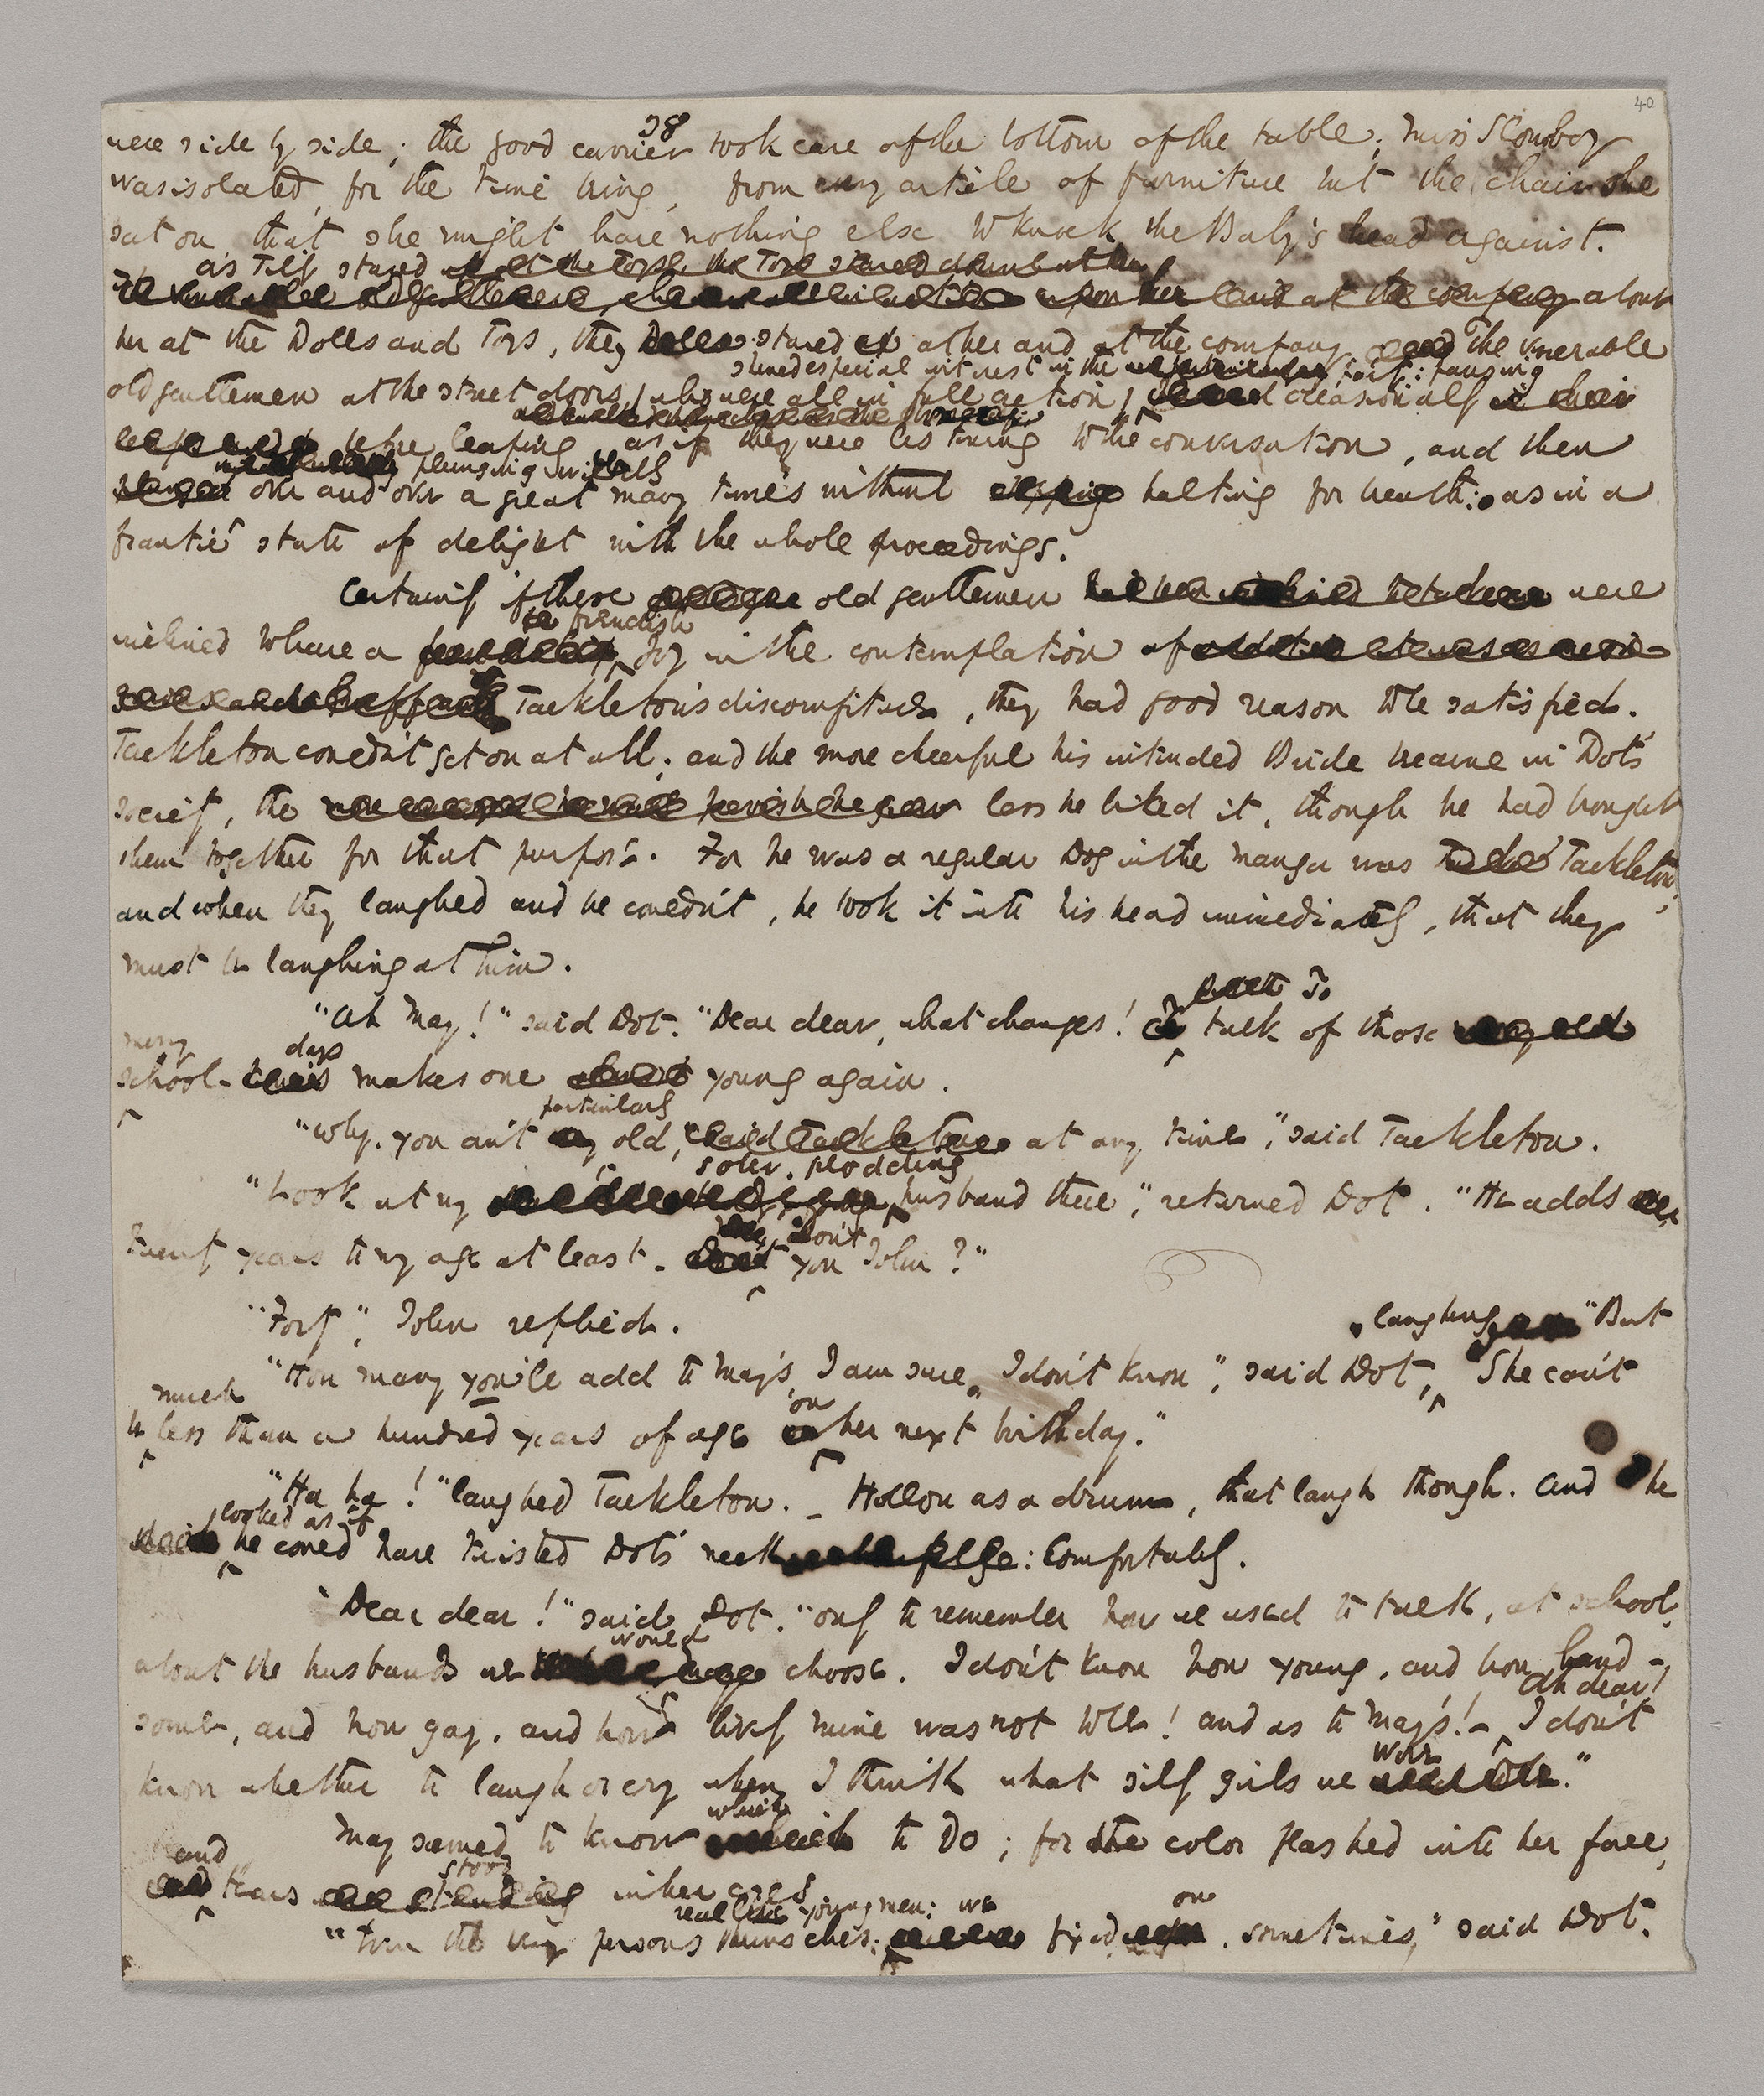 40
28
were side by side; the good carrier took care of the bottom of the table; Miss Slowboy
was isolated, for the time being, from every article of furniture but the chair she
sat on, that she might have nothing else to knock the Baby's head against.
as Tilly stared at the Toys, the Toys stared
about
her at the Dolls and Toys, they stared at her and at the company. The venerable
shewed especial interest in the party: pausing
old gentlemen at the street doors (who were all in full action) occasionally
before leaping, as if they were listening to the conversation, and then
plunging wildly
over and over a great many times without halting for breath: as in a
frantic state of delight with the whole proceedings.
Certainly if these old gentlemen were
fiendish
inclined to have a joy in the contemplation of
Tackleton's discomfiture, they had good reason to be satisfied.
Tackleton couldn't get on at all; and the more cheerful his intended Bride became in Dot's
society, the less he liked it, though he had brought
them together for that purpose. For he was a regular Dog in the manger was Tackleton,
and when they laughed and he couldn't, he took it into his head immediately, that they
must be laughing at him.
To
"Ah May!" said Dot. "Dear dear, what changes! talk of those
merry days
school- makes one young again.
particularly
"Why, you an't old, at any time," said Tackleton.
sober, plodding
"Look at my husband there", returned Dot. "He adds
twenty years to my age at least. Don't you John?"
"Forty", John replied.
laughing "But
"How many you'll add to May's, I am sure I don't know", said Dot, She can't
much
on
be less than a hundred years of age her next birthday."
"Ha ha!" laughed Tackleton. Hollow as a drum, that laugh though. And he
looked as if
he could have twisted Dot's neck: Comfortably.
"Dear dear!" said Dot. "Only to remember how we used to talk, at school,
would
about the husbands we choose. I don't know how young, and how hand-
Ah dear!
some, and how gay, and how lively mine was not to be! and as to May's!- I don't
were
know whether to laugh or cry when I think what silly girls we "
which
May seemed to know to do; for the color flashed into her face,
and
stood
tears in her eyes
real live young men: we
on
"Even the very persons themselves: fixed , sometimes," said Dot.